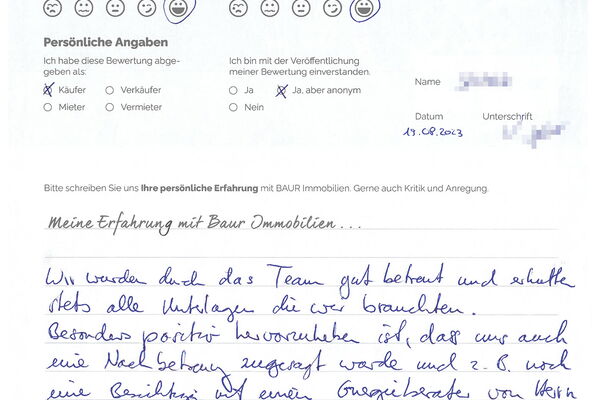 Persönliche Angaben
Ich habe diese Bewertung abge-
geben als:
Käufer
Verkäufer
Mieter
Vermieter
Ich bin mit der Veröffentlichung
meiner Bewertung einverstanden.
Ja
Ja, aber anonym
Nein
Name
Datum
Unterschrift
19.08.2023
Bitte schreiben Sie uns Ihre persönliche Erfahrung mit BAUR Immobilien. Gerne auch Kritik und Anregung.
Meine Erfahrung mit Baur Immobilien...
Wir wurden durch das Team gut betreut und erhielten
stets alle Unterlagen die wir brauchten.
Besonders positiv hervorzuheben ist, dass uns auch
eine Nachbetreuung zugesagt wurde und z.B. noch
eine Besichtigung mit einem Energieberater von Herrn